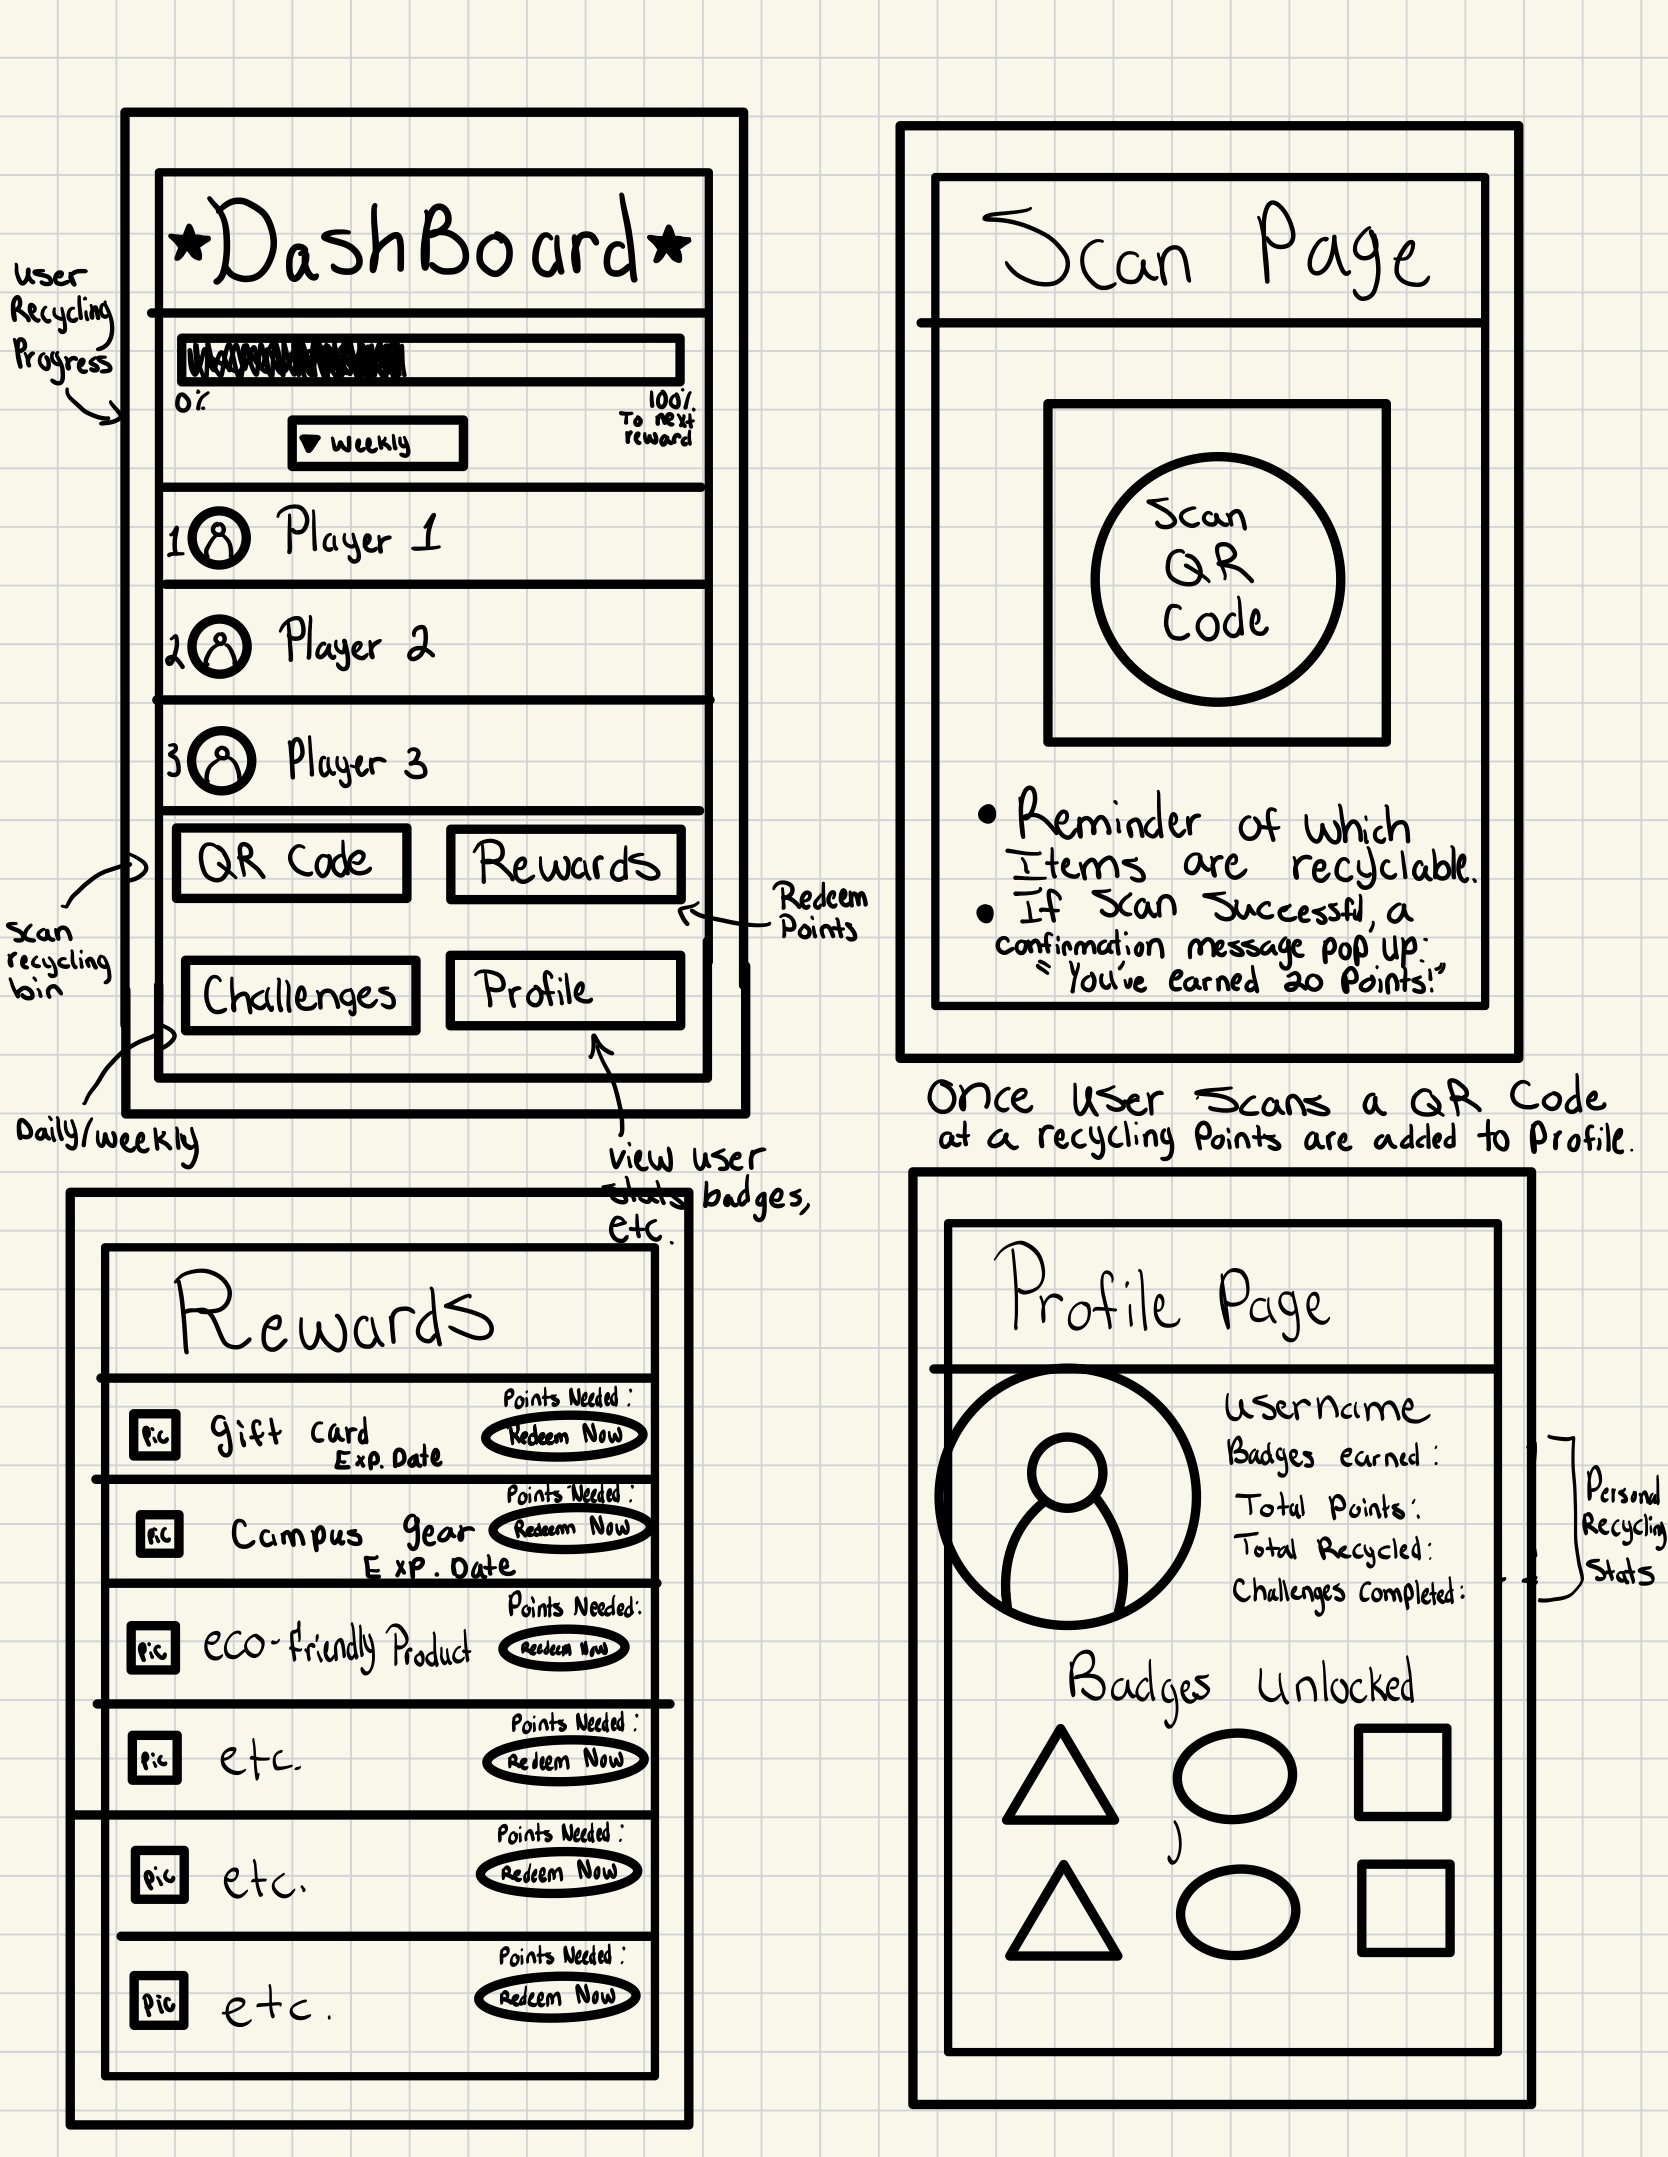 DashBoard
User
Recycling
Progress
0%
100%
To next
reward
Weekly
1 Player 1
2 Player 2
3 Player 3
QR Code
Rewards
Challenges
Profile
Scan
recycling
bin
Redeem
Points
Daily/weekly
view user
stats, badges,
etc.
Scan Page
Scan
QR
Code
Reminder of which
Items are recyclable.
If Scan Successful, a
confirmation message pop up:
"You've earned 20 Points!"
Once User Scans a QR Code
at a recycling Points are added to Profile.
Rewards
Points Needed:
Pic gift card Redeem Now
Exp. Date
Points Needed:
Pic Campus gear Redeem Now
Exp. Date
Points Needed:
Pic eco-friendly Product Redeem Now
Points Needed:
Pic etc. Redeem Now
Points Needed:
Pic etc. Redeem Now
Points Needed:
Pic etc. Redeem Now
Profile Page
Username
Badges earned:
Total Points:
Total Recycled:
Challenges Completed:
Personal
Recycling
Stats
Badges Unlocked